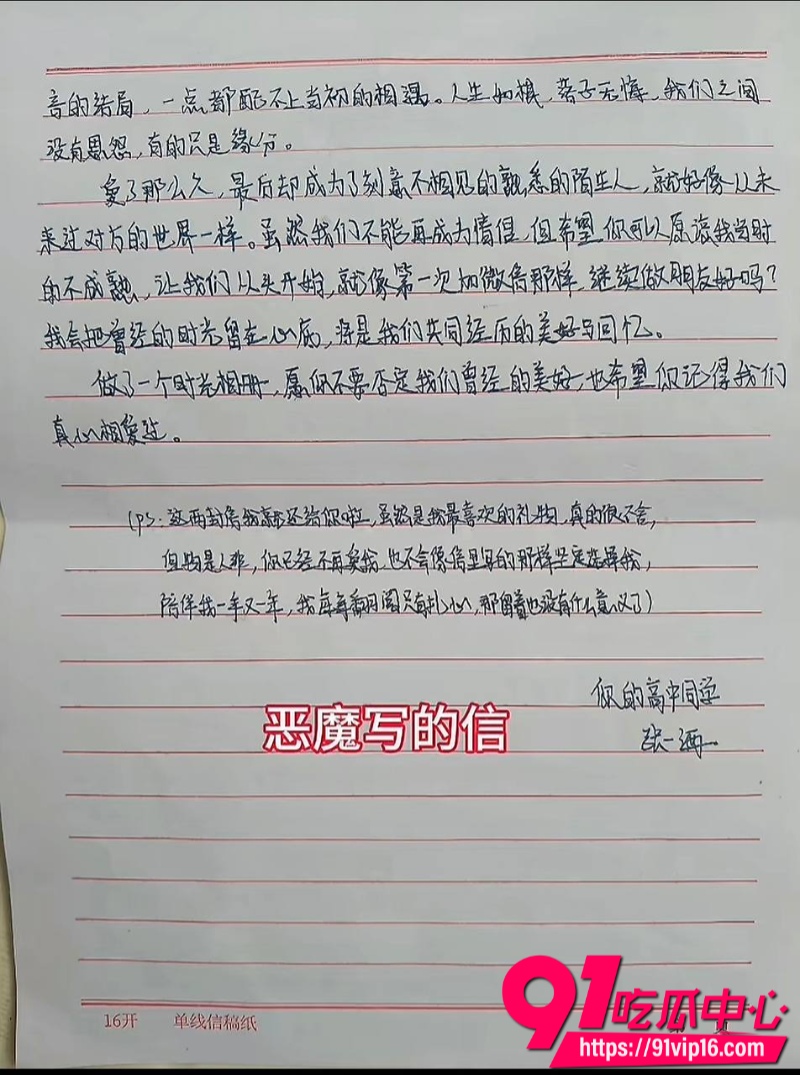 言的结局，一点都配不上当初的相遇。人生如棋，落子无悔，我们之间
没有恩怨，有的只是缘分。
爱了那么久，最后却成为了刻意不相见的熟悉的陌生人，就好像从未
来过对方的世界一样。虽然我们不能再成为情侣，但希望你可以原谅我当时
的不成熟，让我们从头开始，就像第一次加微信那样，继续做朋友好吗？
我会把曾经的时光留在心底，将是我们共同经历的美好与回忆。
做了一个时光相册，愿你不要否定我们曾经的美好，也希望你记得我们
真心相爱过。
(PS：这两封信我就还给你啦，虽然是我最喜欢的礼物，真的很不舍，
但物是人非，你已经不再爱我，也不会像信里写的那样坚定选择我，
陪伴我一年又一年，我每每翻阅只有扎心，那留着也没有什么意义了)
你的高中同学
张一
恶魔写的信
16开 单线信稿纸
91吃瓜中心
https://91vip16.com
页